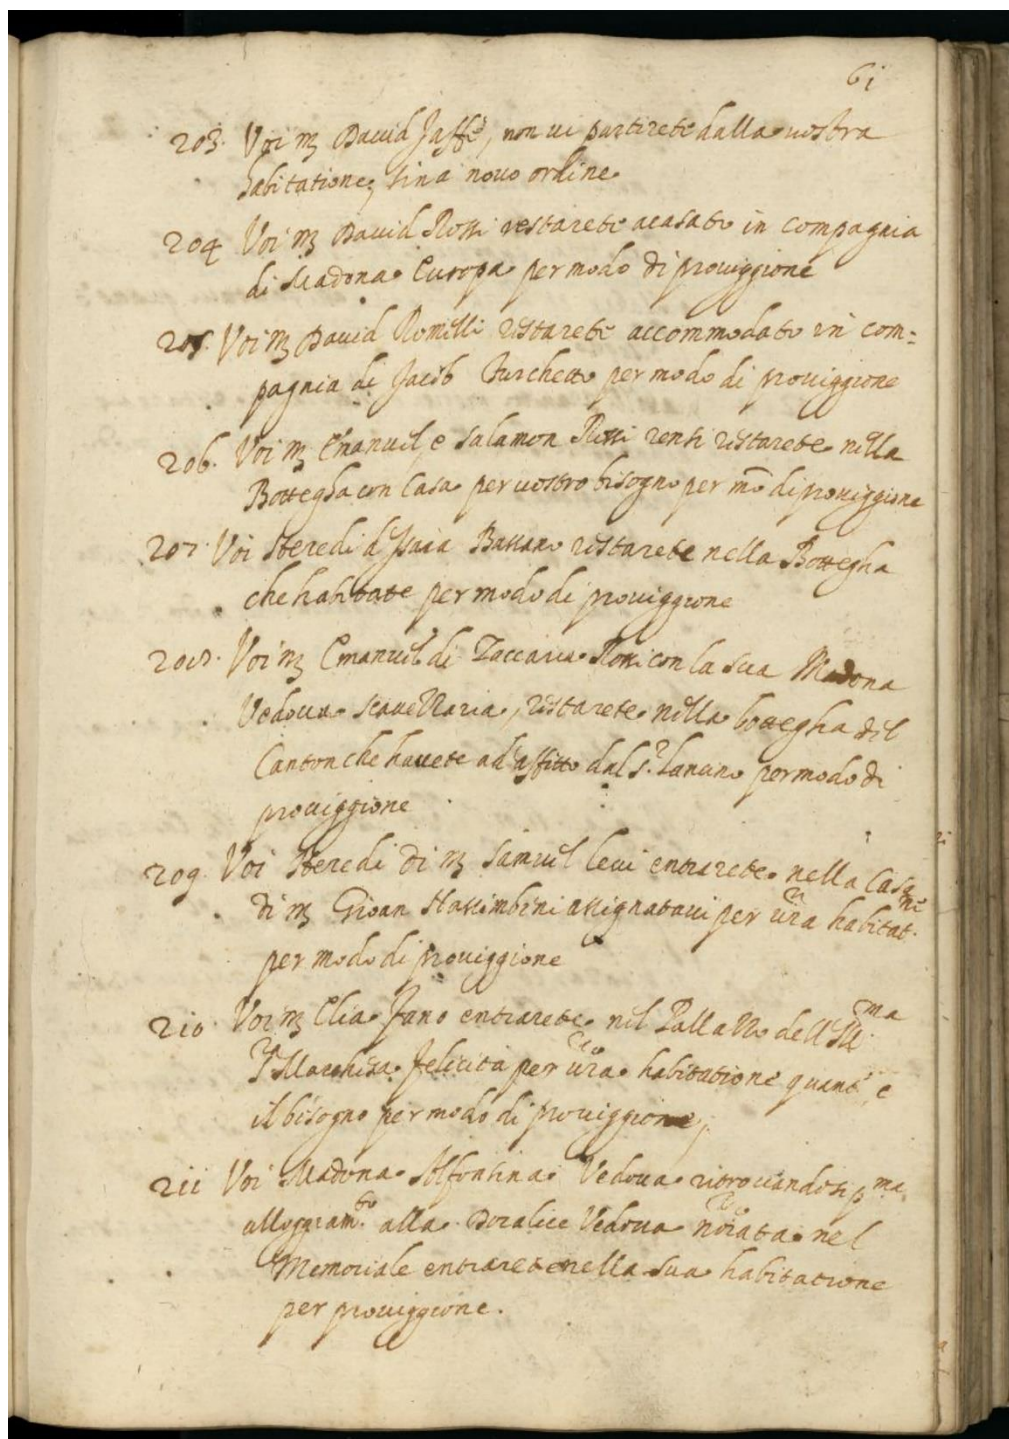 61
203. Voi m David Jaffé, non vi partirete dalla vostra
habitatione, sin a novo ordine
204 Voi m David Rossi restarete acasato in compagnia
di Madona Europa per modo di proviggione
205. Voi m David Romilli restarete accommodato in com=
pagnia di Jacob Turchetto per modo di proviggione
206. Voi m Emanuel, e Salamon Rossi restarete nella
Bottegha con Casa per vostro bisogno per mo di proviggione
207. Voi Heredi d'Isaia Bassano restarete nella Bottegha
che habitate per modo di proviggione
208. Voi m Emanuel di Zaccaria Rossi con la sua Madona
Vedova, restarete nella bottegha del
Canton che havete ad affitto dal s.r per modo di
proviggione
209. Voi Heredi di m Samuel levi entrarete nella Casa
di m Gioan assignatavi per vra habitat.ne
per modo di proviggione
210. Voi m Elia Fano entrarete nel Pallazzo dell Ill.ma
S.ra Marchesa Felicita per vra habitatione quant'è
il bisogno per modo di proviggione,
211 Voi Madona Vedova ritrovandosi p.ma
alloggiam.to alla Doralice Vedova noiata nel
Memoriale entrarete nella sua habitatione
per proviggione.